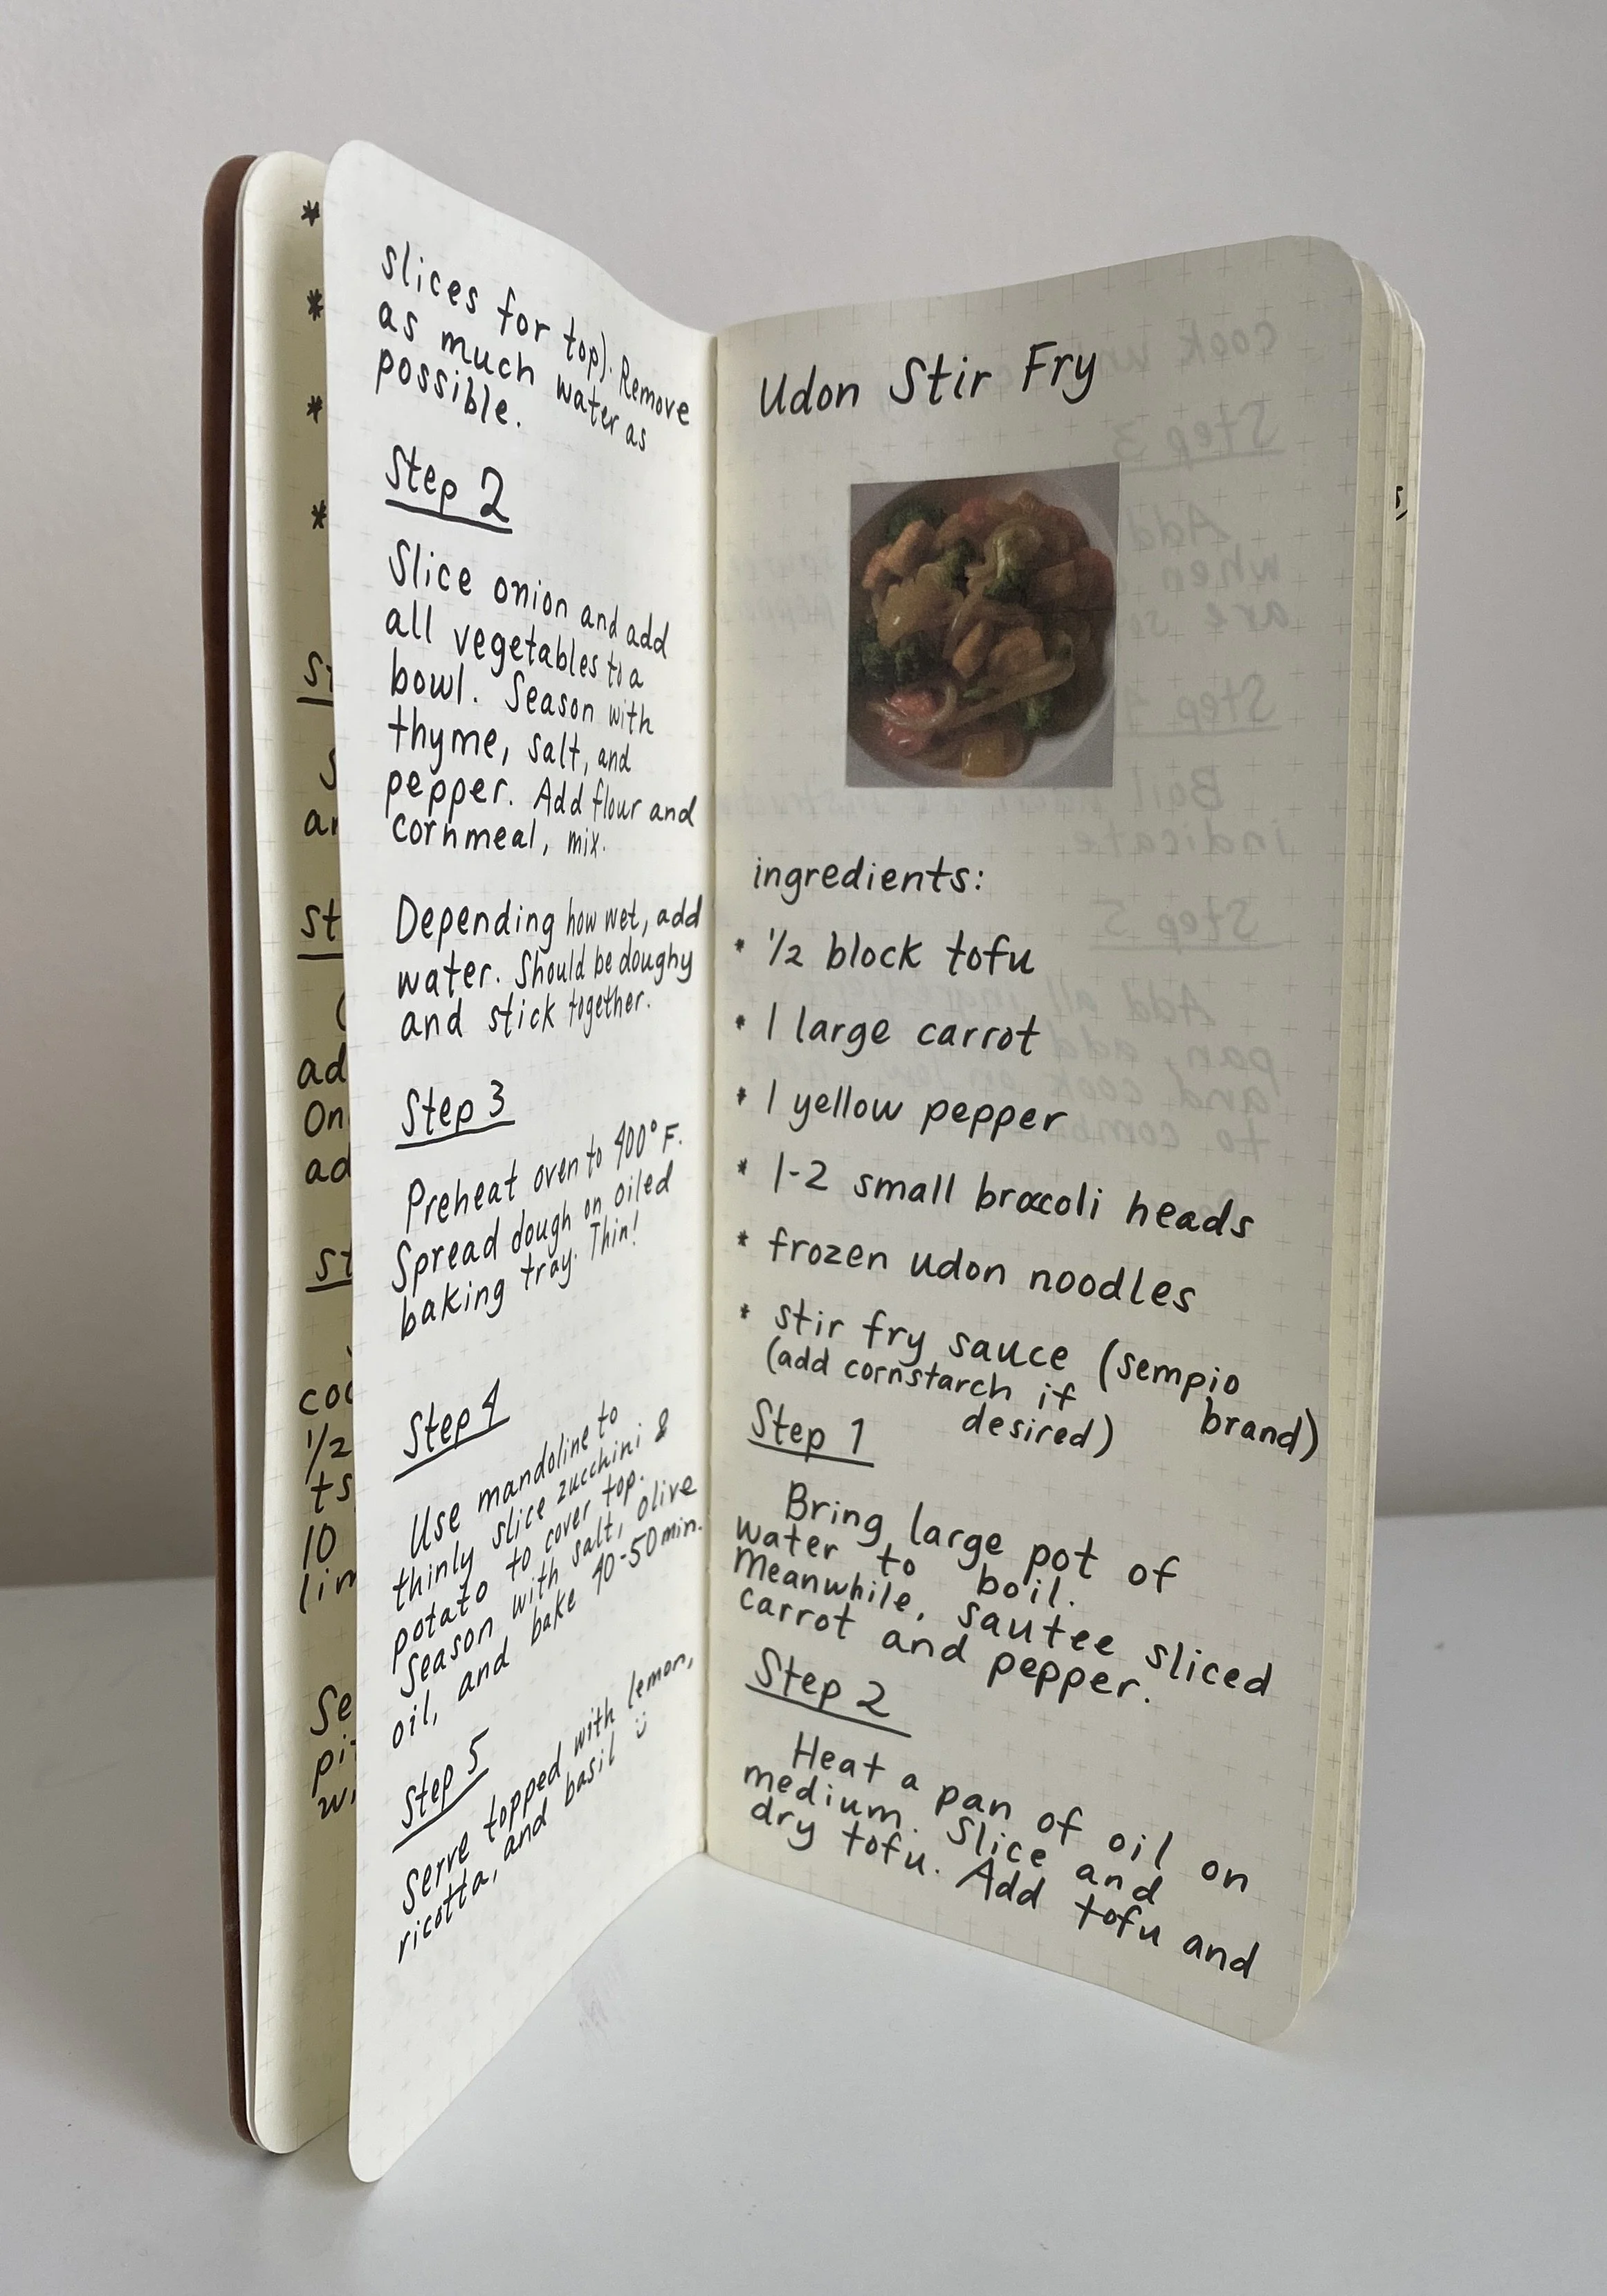 slices for top). Remove
as much water as
possible.
Step 2
Slice onion and add
all vegetables to a
bowl. Season with
thyme, salt, and
pepper. Add flour and
cornmeal, mix.
Depending how wet, add
water. Should be doughy
and stick together.
Step 3
Preheat oven to 400° F.
Spread dough on oiled
baking tray. Thin!
Step 4
Use mandoline to
thinly slice zucchini &
potato to cover top.
Season with salt, olive
oil, and bake 40-50 min.
Step 5
Serve topped with lemon,
ricotta, and basil
Udon Stir Fry
ingredients:
* 1/2 block tofu
* 1 large carrot
* 1 yellow pepper
* 1-2 small broccoli heads
* frozen udon noodles
* stir fry sauce (sempio
brand)
(add cornstarch if
desired)
Step 1
Bring large pot of
water to boil.
Meanwhile, sautee sliced
carrot and pepper.
Step 2
Heat a pan of oil on
medium. Slice and
dry tofu. Add tofu and